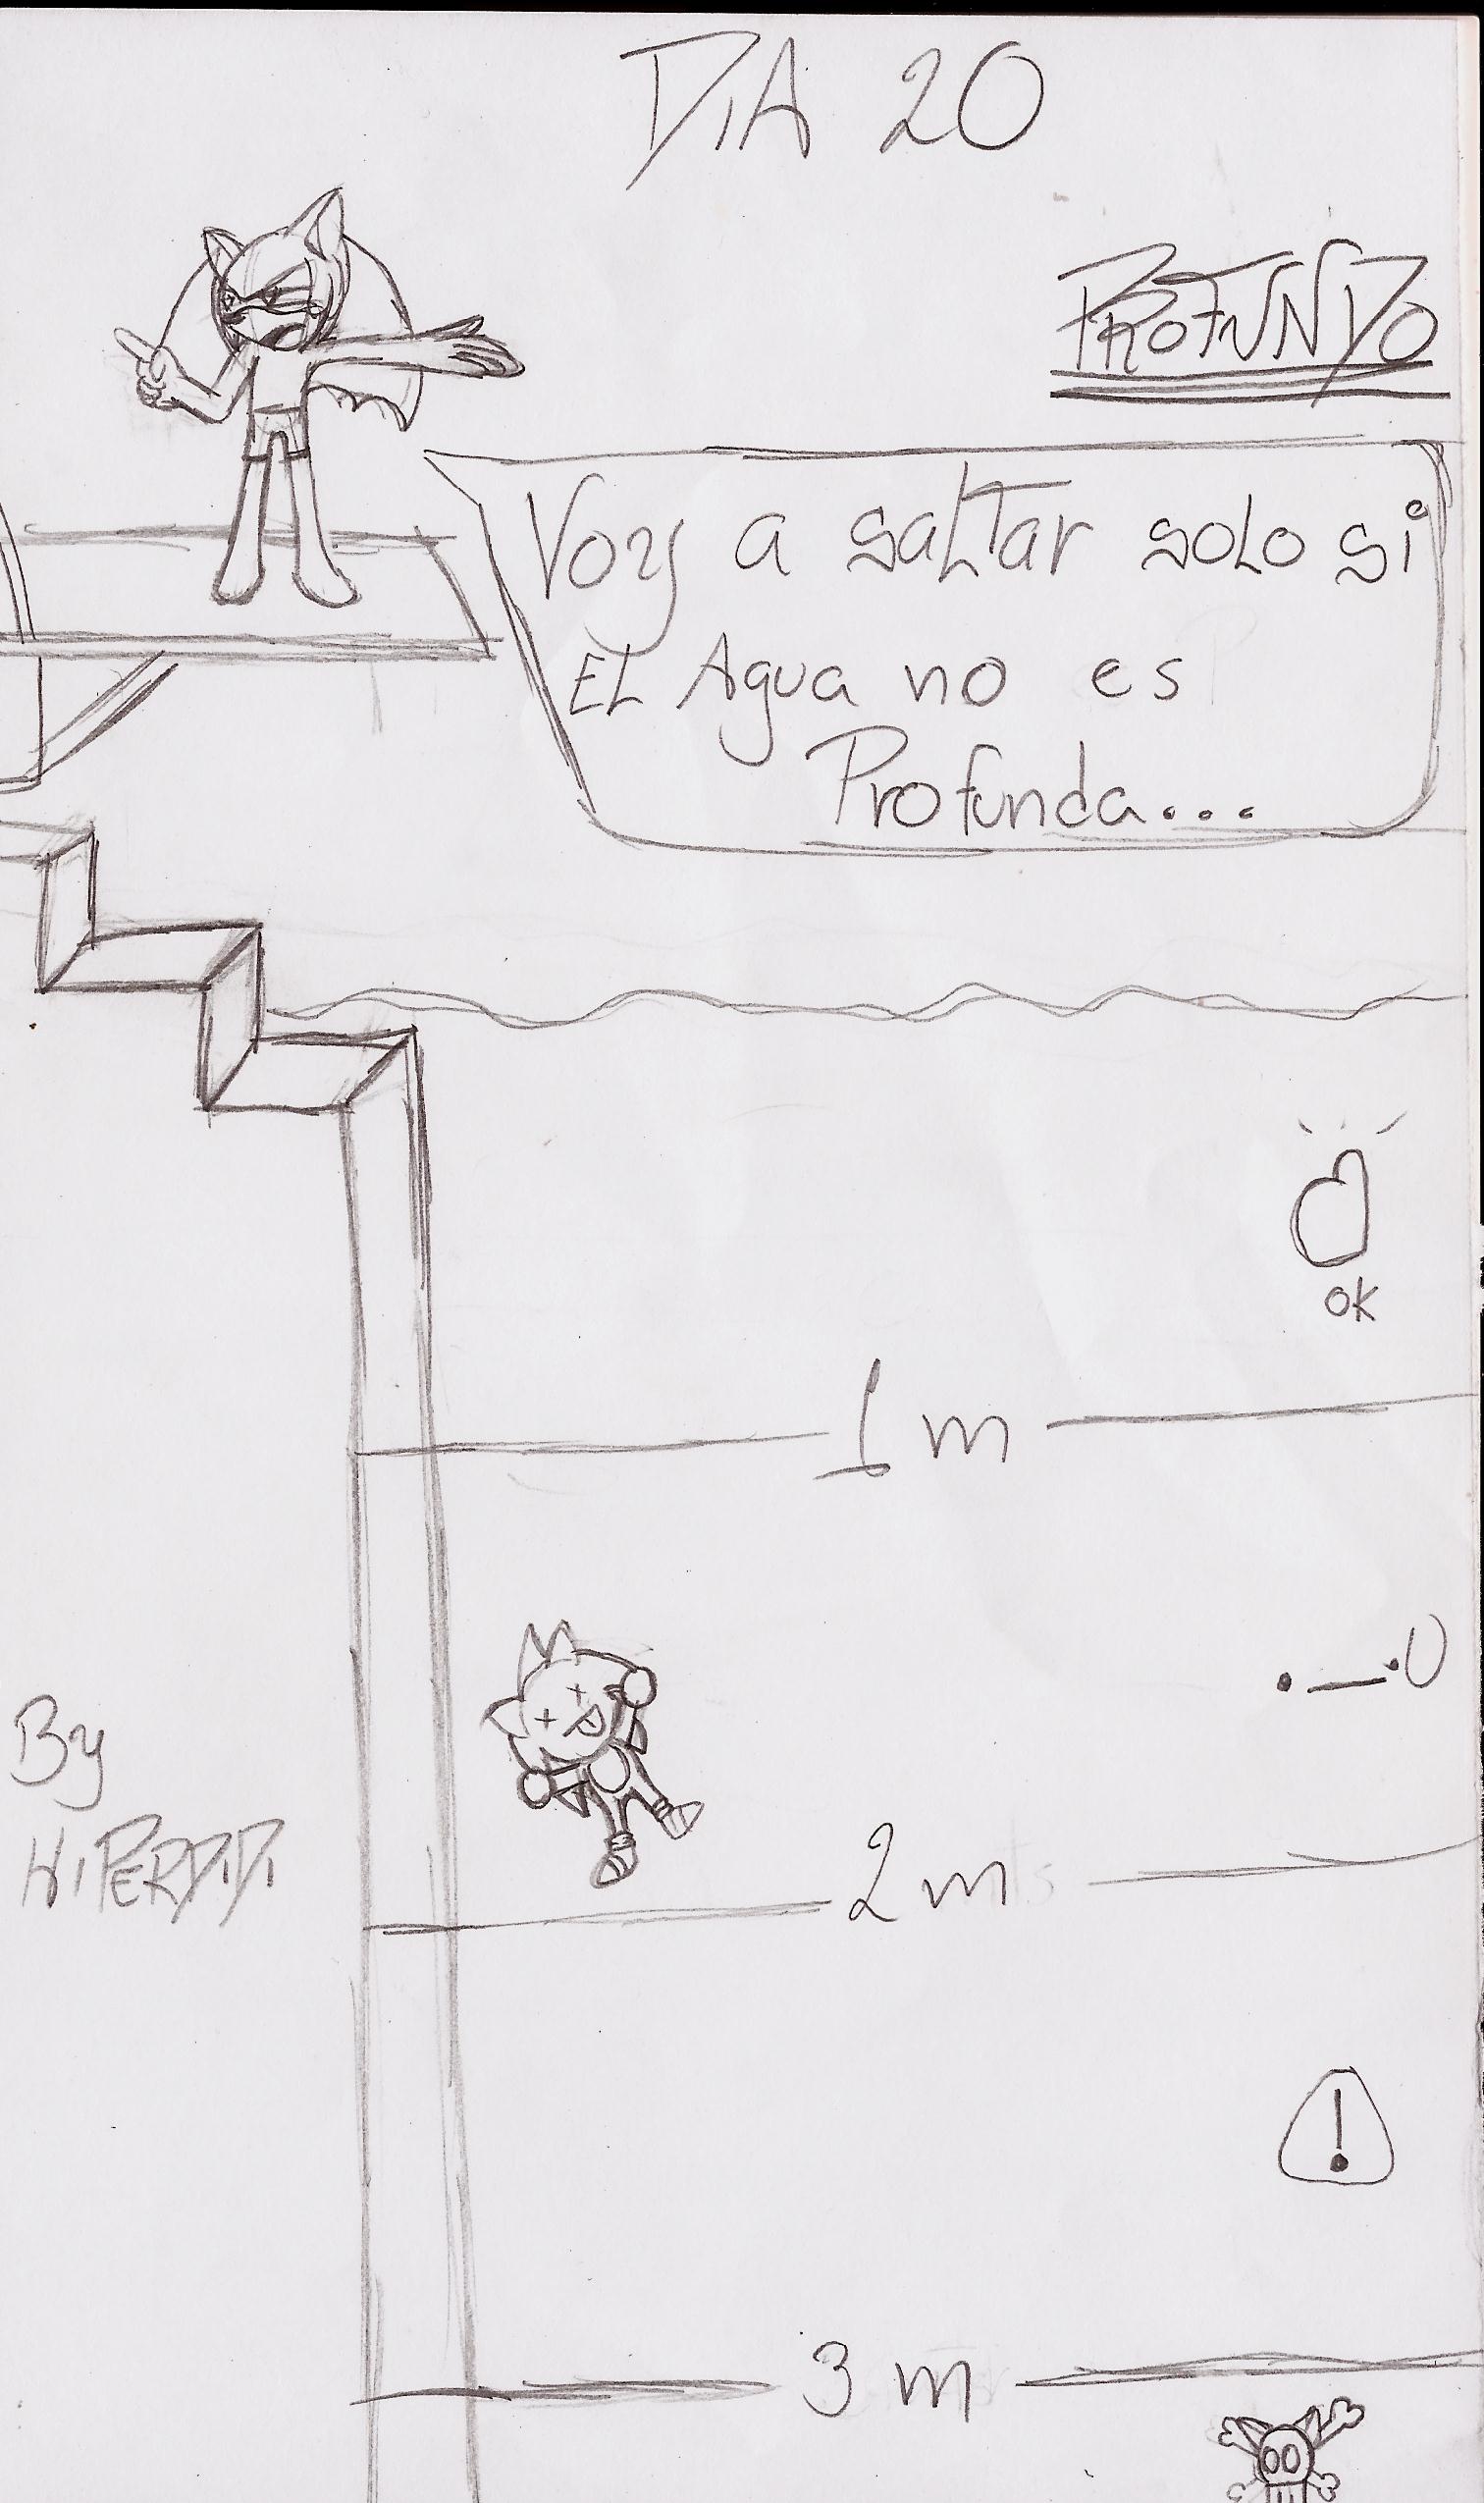 DiA 20
PROFUNDO
Voy a saLTar soLo si
EL Agua no es
Profunda...
OK
1 m
2 m
By
HiPERDiDi
3 m